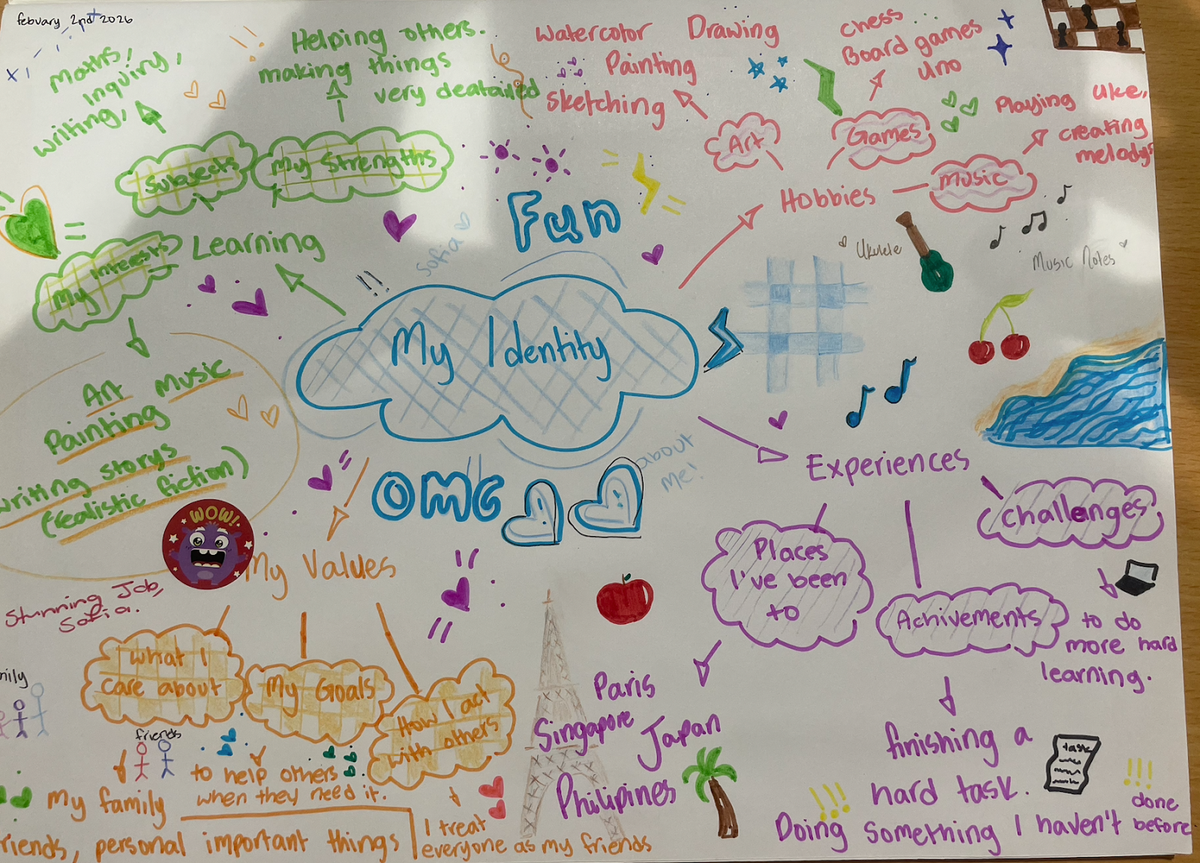 febuary 2nd 2026
Maths,
inquiry,
writing,
Subjects
Helping others.
making things
very deatailed
My Strengths
My Interests
Learning
Art Music
Painting
writing storys
(realistic fiction)
Fun
Sofia
My Identity
OMG
about
me!
Watercolor Drawing
Painting
sketching
Art
chess
Board games
uno
Games
Playing uke,
creating
melodys
Music
Hobbies
Ukulele
Music Notes
Experiences
Places
I've been
to
Paris
Singapore Japan
Philipines
Achivements
finishing a
hard task.
Doing something I haven't done before
task
Challenges
to do
more hard
learning.
WOW!
Stunning Job,
Sofia.
My Values
What I
care about
friends
my family
friends, personal important things
My Goals
to help others
when they need it.
How I act
with others
I treat
everyone as my friends